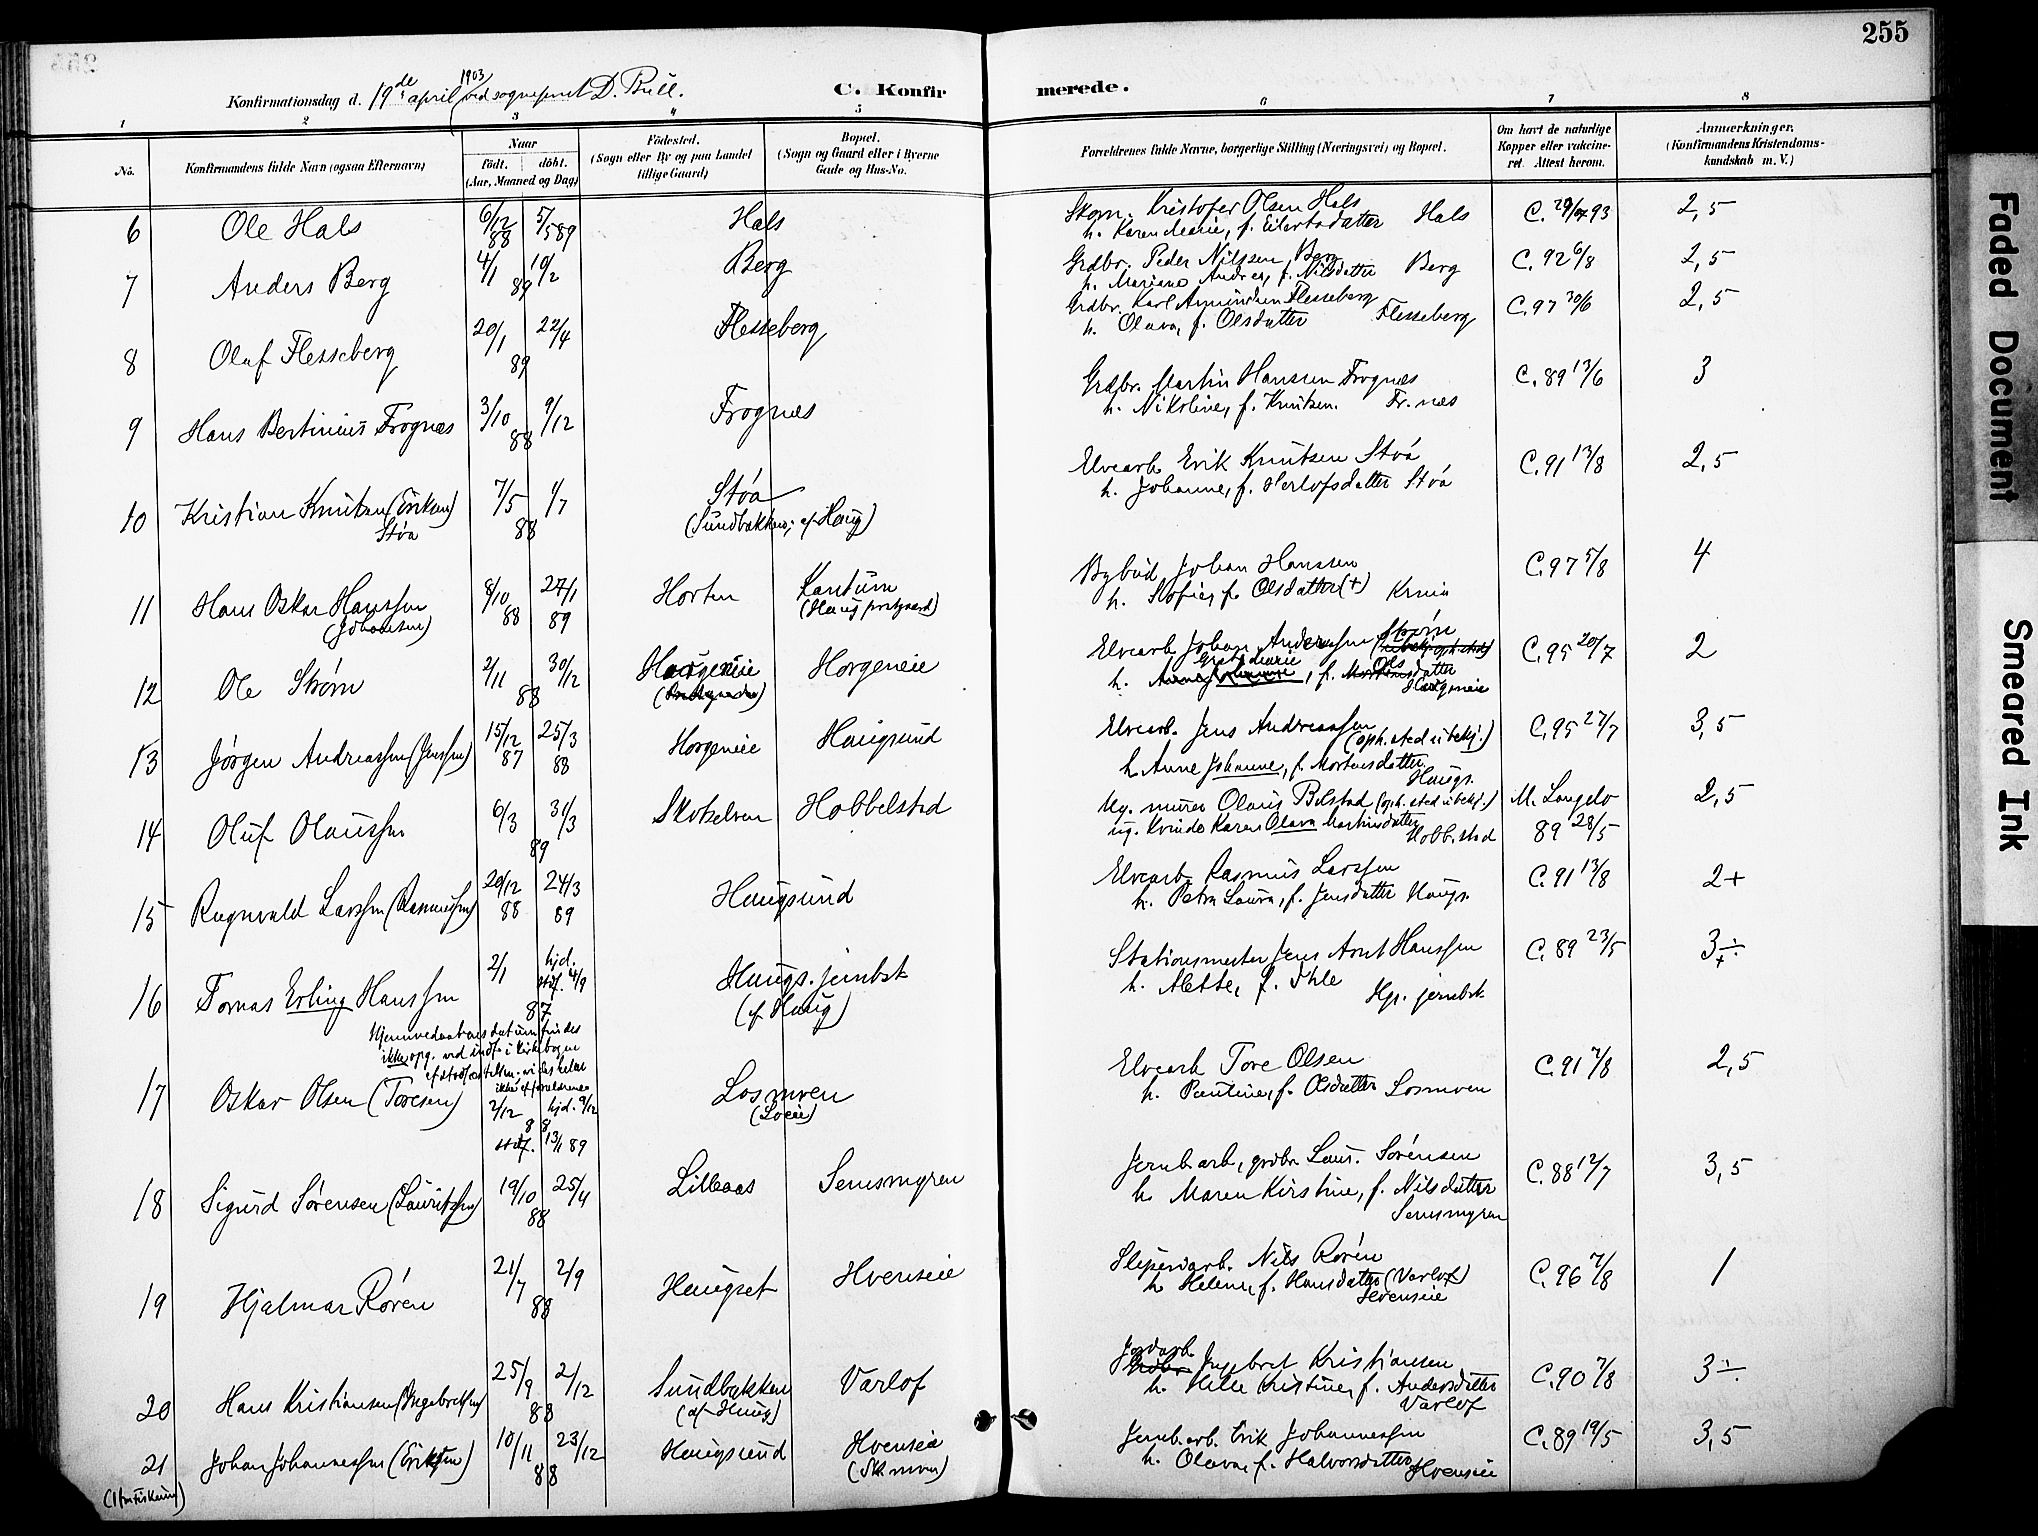 255
Konfirmationsdag d. 19de april 1903 ved sogneprest D. Bull.
C. Konfirmerede.
1 2 3 4 5 6 7 8
No.
Konfirmandens fulde Navn (ogsaa Efternavn)
Naar
Födt. döbt.
(Aar, Maaned og Dag)
Födested.
(Sogn eller By og paa Landet tillige Gaard)
Bopæl.
(Sogn og Gaard eller i Byerne Gade og Hus-No.
Forældrenes fulde Navne, borgerlige Stilling (Næringsvei) og Bopæl.
Om havt de naturlige Kopper eller vaccineret. Attest herom.
Anmærkninger.
(Konfirmandens Kristendomskundskab m. V.)
6 Ole Hals 6/12 88 5/5 89 Hals
Kristofer Olsen Hals Hals C. 93 2,5
h. Karen Marie, f. Eilertsdatter
7 Anders Berg 4/1 10/2 89 Berg
Grdbr. Peder Nilssen Berg Berg C. 92 6/8 2,5
h. Mariane Andrea, f. Nilsdatter
8 Oluf Flesseberg 20/1 22/4 89 Flesseberg
Grdbr. Karl Amundsen Flesseberg Flesseberg C. 97 30/6 2,5
h. Olava, f. Olsdatter
9 Hans Bertinius Frognæs 3/10 9/12 88 Frognæs
Grdbr. Martin Hanssen Frognæs C. 89 13/6 3
h. Nikoline, f. Knutsen. Fr.næs
10 Kristian Knutsen (Eriksen) Støa 7/5 1/7 88 Støa
(Sundbakken; af Haug)
Elvearb. Erik Knutsen Støa C. 91 13/8 2,5
h. Johanne, f. Herlofsdatter Støa
11 Hans Oskar Hanssen (Johansen) 8/10 88 27/1 89 Horten
(Haug prstgaard)
Bybud Johan Hanssen C. 97 5/8 4
h. Sofie, f. Olsdatter (+)
12 Ole Strøm 2/11 30/12 88 Horgeneie Horgeneie
Elvearb. Johan Anderssen Strøm C. 95 20/7 2
13 Jørgen Andreassen (Jenssen) 15/12 87 25/3 88 Horgeneie Haugsund
Elvearb. Jens Andreassen (oph.sted ubekj.) C. 95 27/7 3,5
h. Anne Johanne, f. Mortensdatter Haugs.
14 Oluf Olaussen 6/3 31/3 89 Skotselven Hobbelstad
Ug. murer Olaus Bilstad (oph.sted ubekj.) M. Langelo 2,5
ug. Kvinde Karen Olava Martinsdatter Hobb.stad 89 28/5
15 Ragnvald Larssen (Rasmussen) 20/12 88 24/3 89 Haugsund
Elvearb. Rasmus Larssen C. 91 13/8 2+
h. Petra Laura, f. Jensdatter Haugs.
16 Tomas Erling Hanssen 2/1 hjd. stdf. 4/9 87 Haugs. jernbst
(af Haug)
Stationsmester Jens Arnt Hanssen C. 89 23/5 3+÷
h. Alette, f. Ihle Hgs. jernbst
Hjemmedaabens datum findes
ikke opg. ved indf. i kirkebogen
17 Oskar Olsen (Toresen) 2/12 hjd. 9/12 88 Losmoen
(Loeie)
stdf. 13/1 89
Elvearb. Tore Olsen C. 91 7/8 2,5
h. Pauline, f. Olsdatter Losmoen
18 Sigurd Sørensen (Lauritssen) 19/10 25/4 88 Lilleaas Semsmyren
Jernb.arb., grdbr. Laur. Sørensen C. 88 12/7 3,5
h. Maren Kirstine, f. Nilsdatter
Semsmyren
19 Hjalmar Røren 21/7 2/9 88 Haugset Hvenseie
Sliperiarb. Nils Røren C. 96 7/8 1
h. Helene, f. Hansdatter (Varlof)
Hvenseie
20 Hans Kristiansen (Ingebretsen) 25/9 2/12 88 Sundbakken Varlof
(af Haug)
Jordarb. Ingebret Kristiansen C. 90 7/8 3÷
h. Helle Kristine, f. Andersdatter
Varlof
21 Johan Johannessen (Eriksen) 10/11 23/12 88 Haugsund Hvenseie
Jernb.arb. Erik Johannessen C. 89 19/5 3,5
h. Olava, f. Halvorsdatter Hvenseie
Faded Document
Smeared Ink